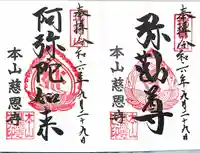 奉拝 令和六年九月二十九日
弥勒尊
本山 慈恩寺
奉拝 令和六年九月二十九日
阿弥陀如来
本山 慈恩寺